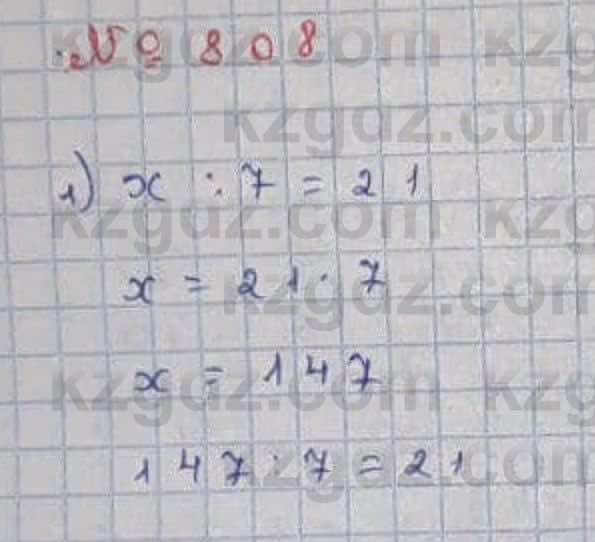 № 808
1) x : 7 = 21
x = 21 · 7
x = 147
147 : 7 = 21
kzgdz.com